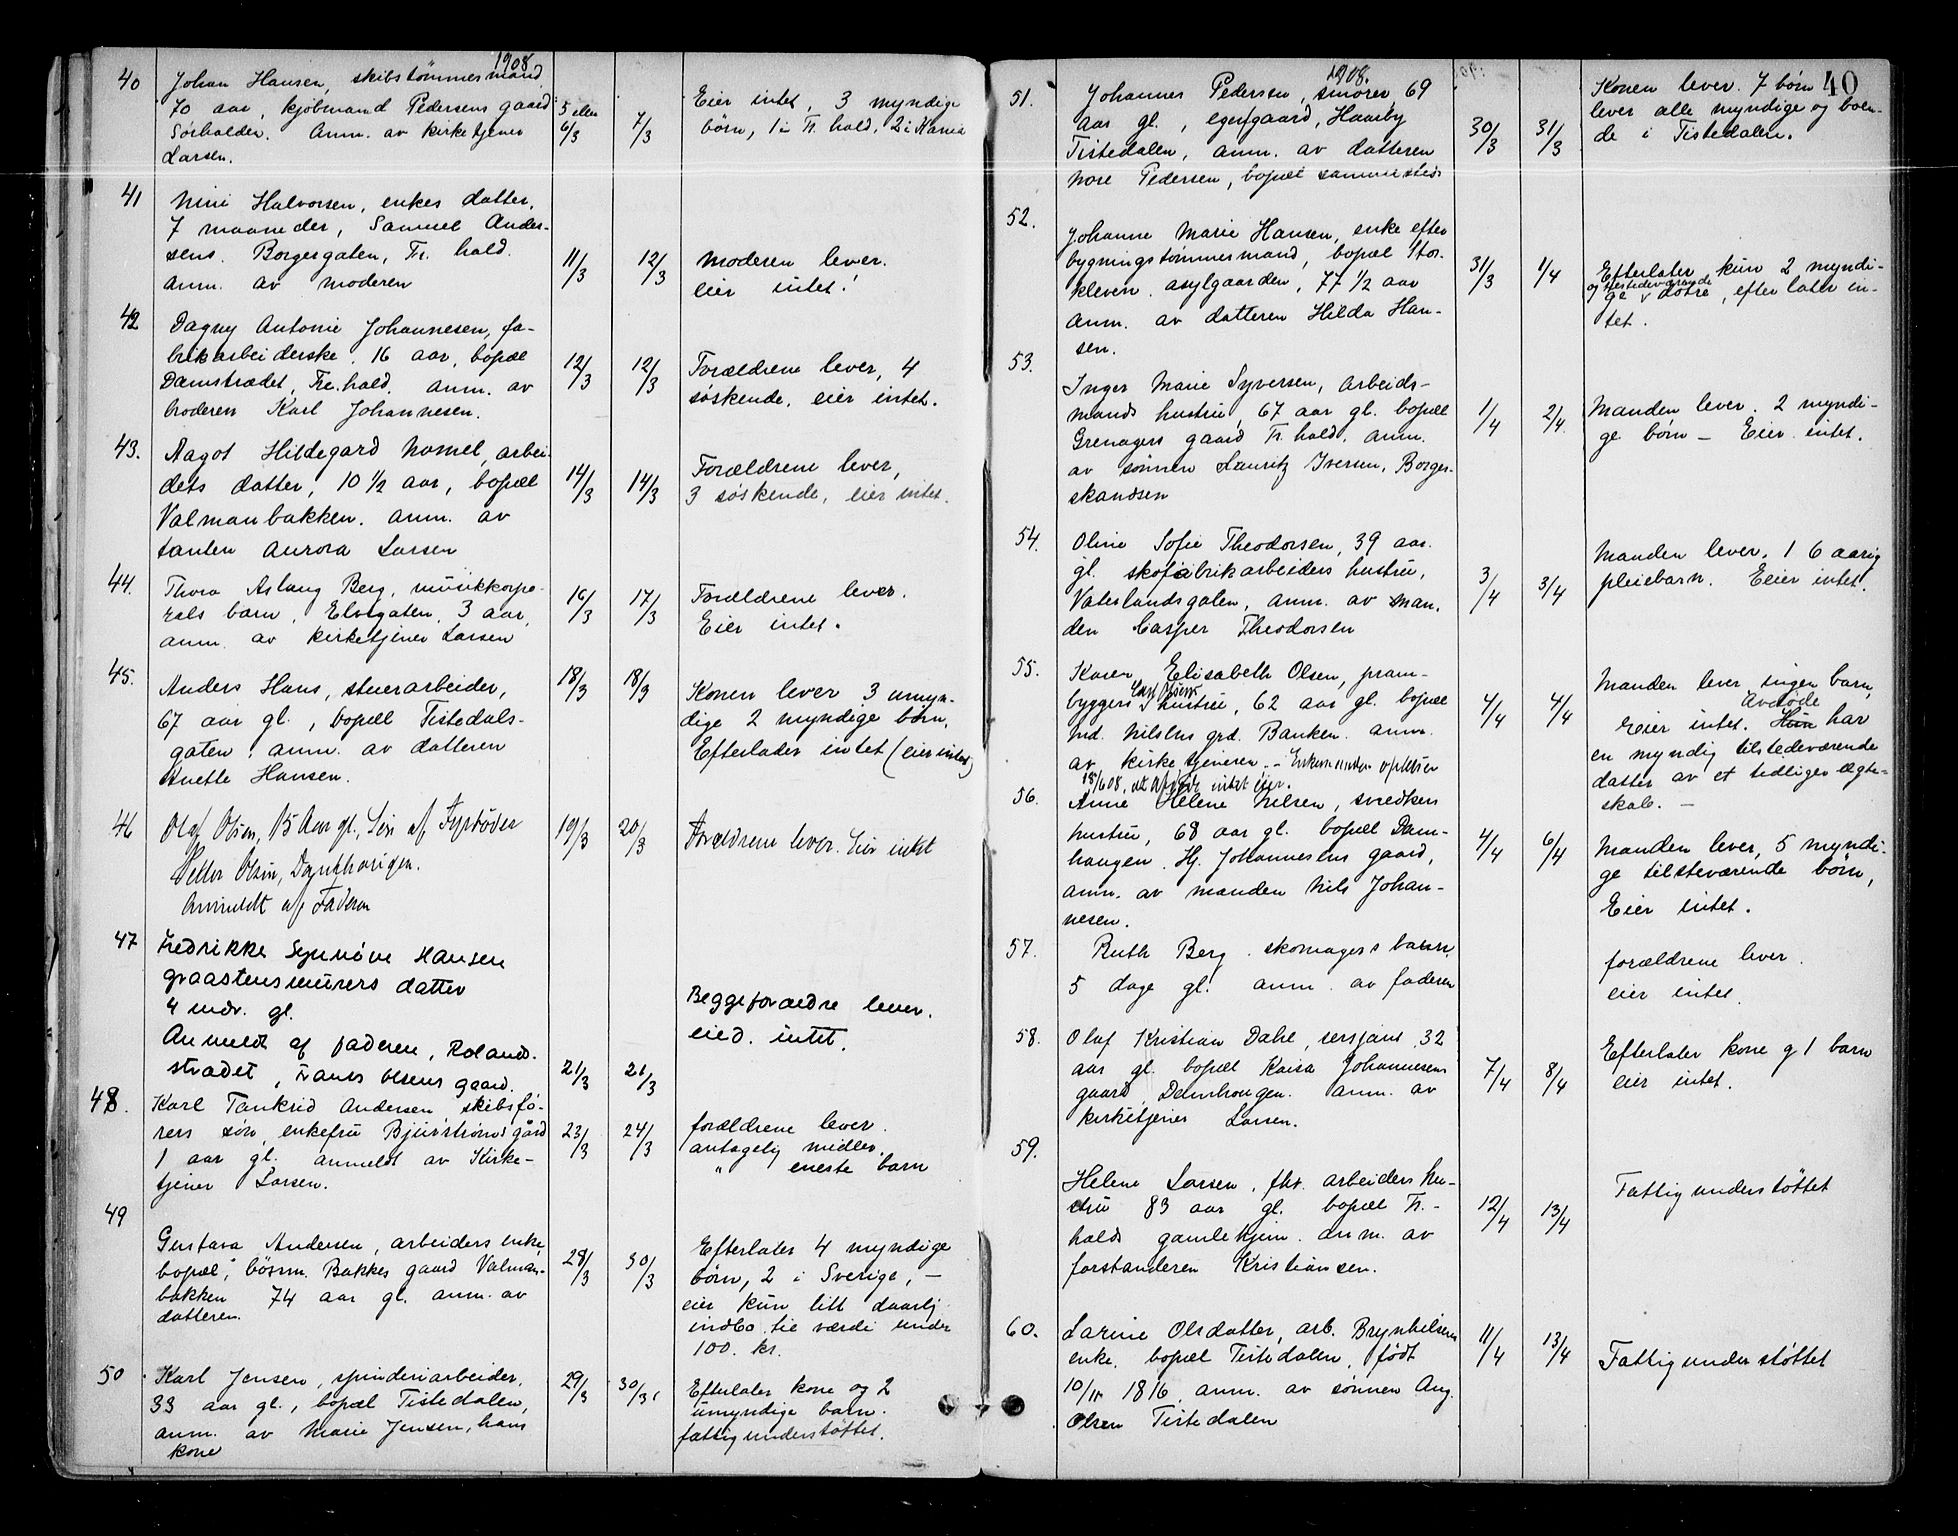 1908
40 Johan Hansen, skibstømmermand
70 aar, kjøbmand Pedersens gaard
Sørhalden. Anm. av kirketjener
Larsen.
5 eller
6/3 7/3
Eier intet, 3 myndige
børn, 1 i Fr. hald, 2 i Kania
41 Nini Halvorsen, enkes datter,
7 maaneder, Samuel Ander-
sens. Borgergaten, Fr. hald.
anm. av moderen
11/3 12/3
Moderen lever.
eier intet!
42 Dagny Antonie Johannesen, fa-
brikarbeiderske. 16 aar, bopæl
Damstrædet, Fre.hald. anm. av
broderen Karl Johannesen.
12/3 12/3
Forældrene lever, 4
søskende, eier intet.
43. Aagot Hildegard Nomel, arbei-
dets datter, 10 1/2 aar, bopæl
Valmanbakken. anm. av
tanten Aurora Larsen
14/3 14/3
Forældrene lever,
3 søskende, eier intet.
44. Thora Aslaug Berg, musikkorpo-
rals barn, Elvegaten, 3 aar,
anm. av kirketjener Larsen
16/3 17/3
Forældrene lever.
Eier intet.
45. Anders Hans, stuerarbeider,
67 aar gl., bopæl Tistedals-
gaten, anm. av datteren
Anette Hansen.
18/3 18/3
Konen lever 3 umyn-
dige 2 myndige børn,
Efterlader intet (eier intet)
46 Olaf Olsen, 15 Aar gl., Søn af Fyrbøder
Petter Olsen, Damhaugen.
Anmeldt af Faderen
19/3 20/3
Forældrene lever. Eier intet
47 Fredrikke Synnøve Hansen
graastensmurers datter
4 mdr. gl.
Anmeldt af faderen, Rolands-
strædet, Frants Olsens gaard.
21/3 21/3
Begge forældre lever.
eied. intet.
48. Karl Tankrid Andersen, skibsfø-
rers søn, enkefru Bjurstrøms gård
1 aar gl. anmeldt av Kirke-
tjener Larsen.
23/3 24/3
forældrene lever.
antagelig midler.
" eneste barn
49
Gustava Andersen, arbeiders enke,
bopæl, bøssm. Bakkes gaard Valman-
bakken 74 aar gl. anm. av
datteren.
28/3 30/3
Efterlater 4 myndige
børn, 2 i Sverige, –
eier kun litt daarlig
indbo til værdi under
100. kr.
50 Karl Jensen, spinderiarbeider,
33 aar gl., bopæl Tistedalen,
anm. av Marie Jensen, hans
kone
29/3 30/3
Efterlater kone og 2
umyndige barn.
fattigunderstøttet.
1908.
40
51. Johannes Pedersen, smører, 69
aar gl., egengaard, Haaby
Tistedalen, anm. av datteren
Nore Pedersen, bopæl sammesteds
30/3 31/3
Konen lever. 7 børn
lever alle myndige og boen-
de i Tistedalen.
52. Johanne Marie Hansen, enke efter
bygningstømmermand, bopæl Stor-
kleven. asylgaarden, 77 1/2 aar
Anm. av datteren Hilda Han-
sen.
31/3 1/4
Efterlater kun 2 myndi-
og tilstedeværende
ge v døtre, efterlater in-
tet.
53. Inger Marie Syversen, arbeids-
mands hustru, 67 aar gl. bopæl
Grenagers gaard, Fr. hald. anm.
av sønnen Lauritz Iversen, Borger-
skandsen
1/4 2/4.
Manden lever. 2 myndi-
ge børn – Eier intet.
54. Oline Sofie Theodorsen, 39 aar.
gl. skofabrikarbeiders hustru,
Vaterlandsgaten, anm. av man-
den Casper Theodorsen
3/4 3/4
Manden lever. 1 6 aarig
pleiebarn. Eier intet.
55. Karen Elisabeth Olsen, pram-
byggers hustru, 62 aar gl. bopæl
Nd. Nilsens grd. Banken. anm.
av kirketjeneren. – Enkemanden oplyser
18/6 08, at Afdøde intet eier.
4/4 4/4
Manden lever ingen barn,
Avdøde
Eier intet. Hun har
en myndig tilstedeværende
datter av et tidligere ægte-
skab. –
56. Anne Helene Nilsen, smedkens
hustru, 68 aar gl. bopæl Dam-
haugen. Hj. Johannesens gaard,
anm. av manden Nils Johan-
nesen.
4/4 6/4
Manden lever, 5 myndi-
ge tilsteværende børn,
Eier intet.
57. Ruth Berg. skomagers barn,
5 dage gl. anm. av faderen
forældrene lever.
eier intet.
58. Oluf Kristian Dahl, sersjant, 32
aar gl. bopæl Kaisa Johannesens
gaard, Damhougen. anm. av
kirketjener Larsen.
7/4 8/4
Efterlater kone g 1 barn
eier intet.
59.
Helene Larsen, fhv. arbeiders hu-
stru 83 aar gl. bopæl Fr.-
halds gamlehjem. anm. av
forstanderen Kristiansen.
12/4 13/4
Fattigunderstøttet
60. Larine Olsdatter, arb. Brynhilsens
enke. bopæl Tistedalen, født
10/11 1816, anm. av sønnen Aug.
Olsen Tistedalen
11/4 13/4
Fattigunderstøttet